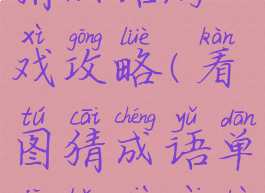 xì gōng lüè kàn
戏攻略(看
tú cāi chéng yǔ dān
图猜成语单